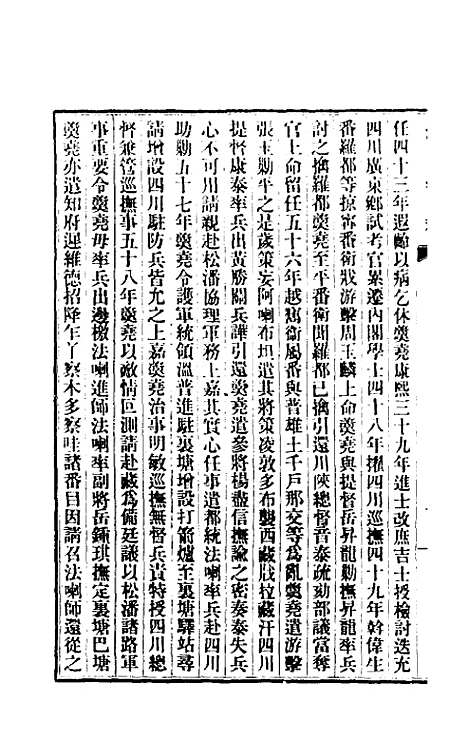 任四十三年遐齡以病乞休羹堯康熙三十九年進士改庶吉士授檢討迭充
四川廣東鄉試考官累遷內閣學士四十八年擢四川巡撫四十九年斡偉生
番羅都等掠甯番衞戕游擊周玉麟上命羹堯與提督岳昇龍勦撫昇龍率兵
討之擒羅都羹堯至平番衞聞羅都已擒引還川陝總督音泰疏劾部議當奪
官上命留任五十六年越巂衞屬番與普雄土千戶那交等爲亂羹堯遣游擊
張玉勦平之是歲策妄阿喇布坦遣其將策凌敦多布襲西藏戕拉藏汗四川
提督康泰率兵出黃勝關兵譁引還羹堯遣參將楊盡信撫諭之密奏泰失兵
心不可用請親赴松潘協理軍務上嘉其實心任事遣都統法喇率兵赴四川
助勦五十七年羹堯令護軍統領溫普進駐裏塘增設打箭爐至裏塘驛站尋
請增設四川駐防兵皆允之上嘉羹堯治事明敏巡撫無督兵責特授四川總
督兼管巡撫事五十八年羹堯以敵情叵測請赴藏爲備廷議以松潘諸路軍
事重要令羹堯毋率兵出邊檄法喇進師法喇率副將岳鍾琪撫定裏塘巴塘
羹堯亦遣知府遲維德招降乍丫察木多察哇諸番目因請召法喇師還從之